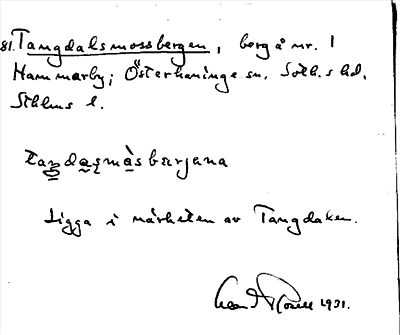 81. Tangdalsmossbergen, berg å nr. 1
Hammarby; Österhaninge sn. Soth.s hd.
Sthlms l.
tandasmåsbærjena
Ligga i närheten av Tangdalen.
1931.